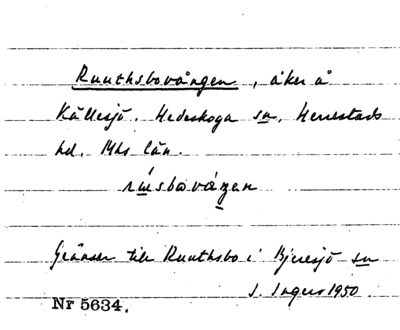 Ruuthsbovången, åker å
Källesjö. Hedeskoga sn, Herrestads
hd, Mhs län.
rúsbovåŋen
Gränser till Ruuthsbo i Bjeresjö sn
S. Ingers 1950.
Nr 5634.